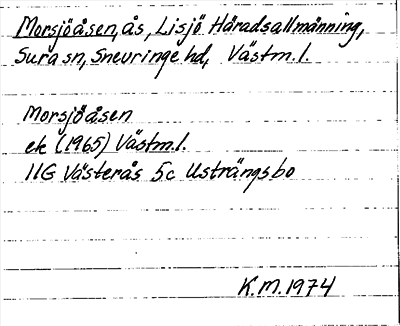 Morsjöåsen, ås, Lisjö Häradsallmänning,
Sura sn, Snevringe hd, Västm.l.
Morsjöåsen
ek (1965) Västm.l.
11G Västerås 5c Usträngsbo
K.M. 1974